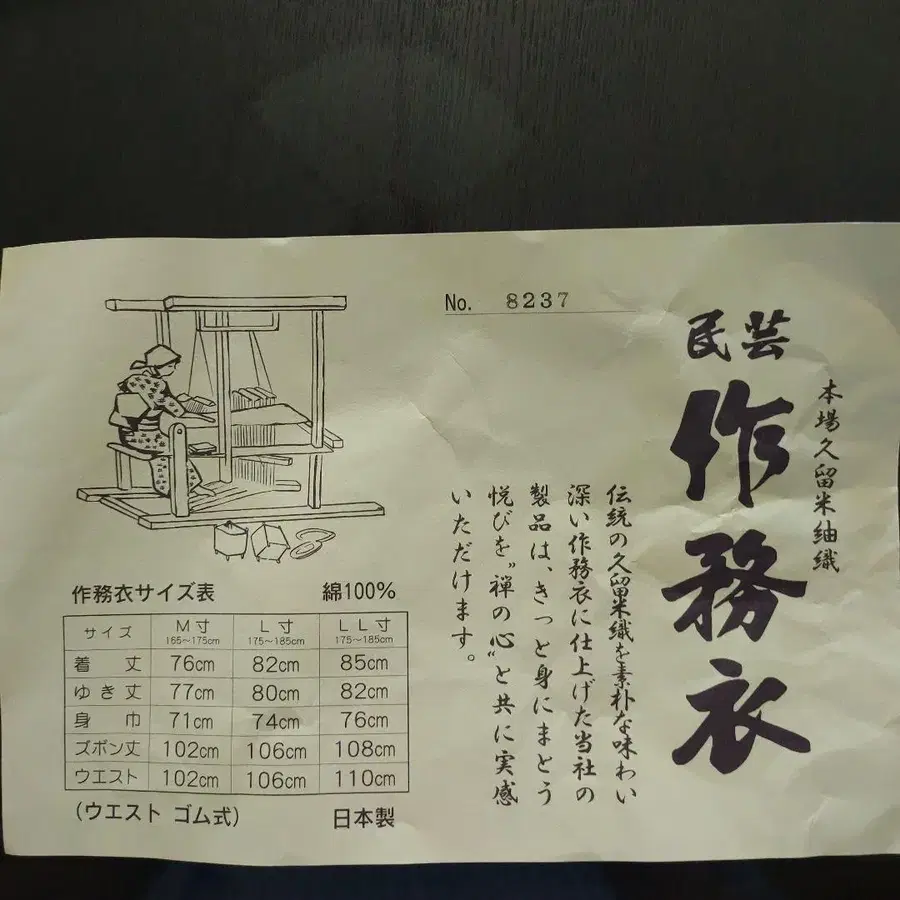 No. 8237
民芸
作務衣
本場久留米紬織
伝統の久留米織を素朴な味わい
深い作務衣に仕上げた当社の
製品は、きっと身にまとう
悦びを〝禅の心〟と共に実感
いただけます。
作務衣サイズ表 綿100%
サイズ M寸 165~175cm L寸 175~185cm LL寸 175~185cm
着丈 76cm 82cm 85cm
ゆき丈 77cm 80cm 82cm
身巾 71cm 74cm 76cm
ズボン丈 102cm 106cm 108cm
ウエスト 102cm 106cm 110cm
(ウエスト ゴム式) 日本製